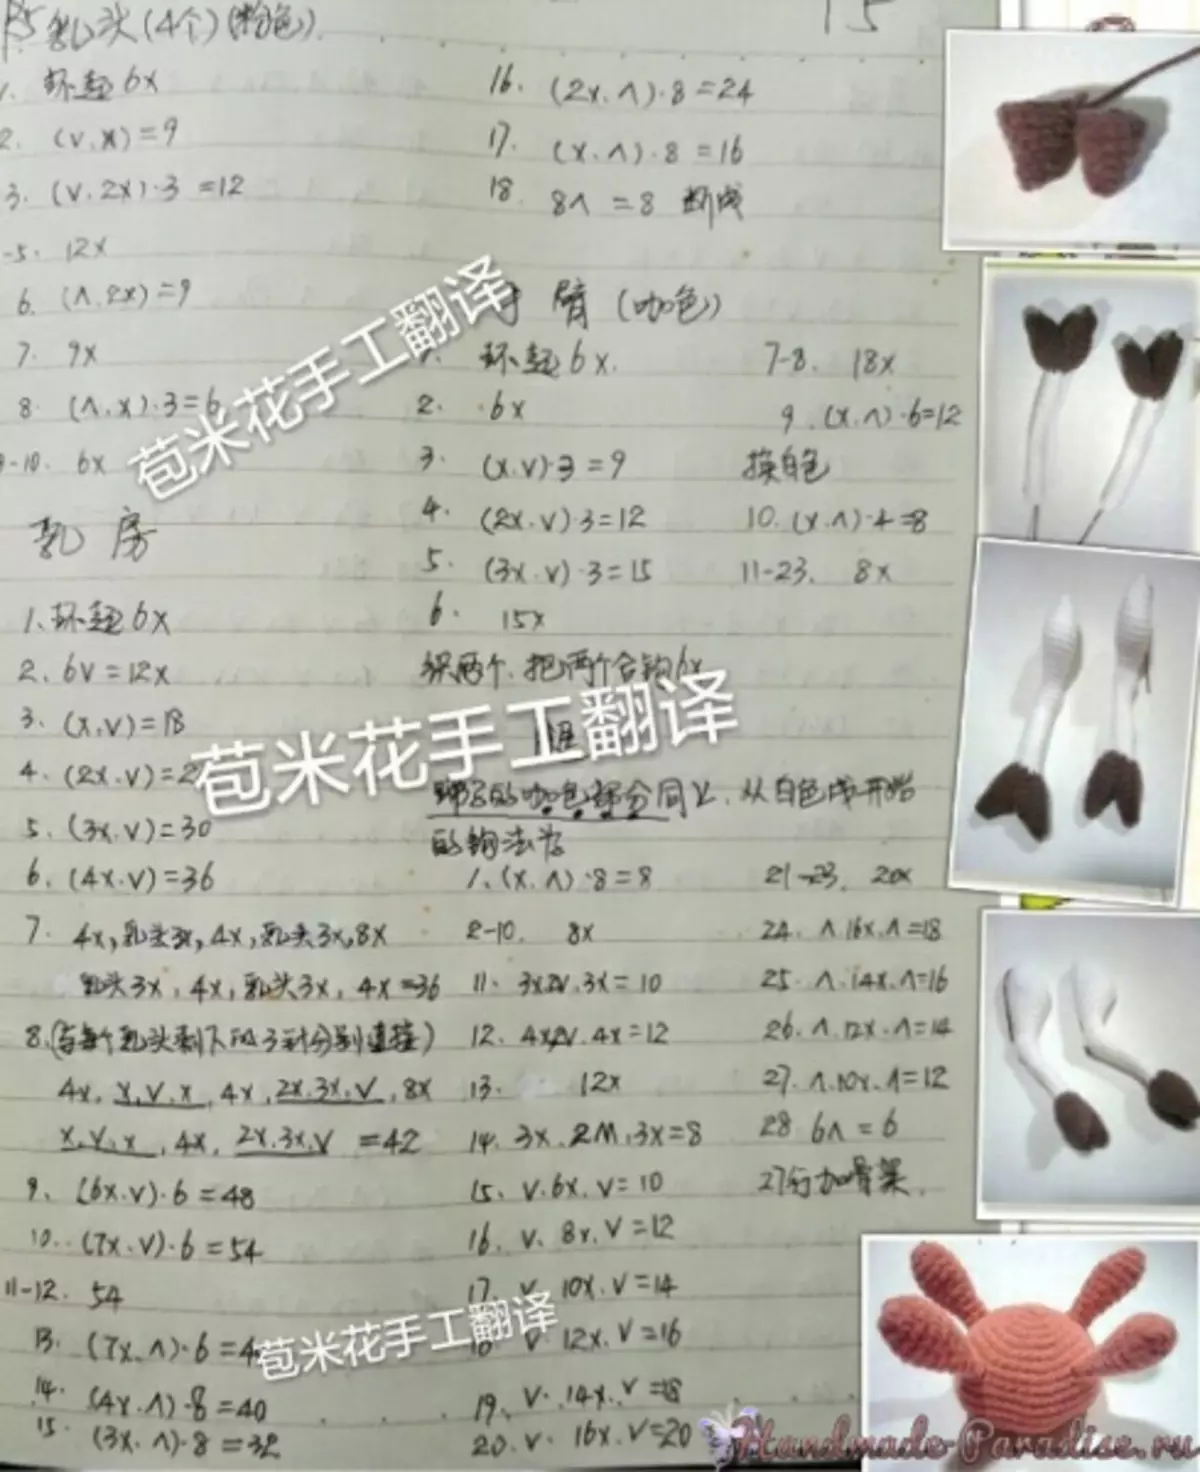 乳头(4个)(粉色)
1. 环起6x
2. (v.x)=9
3. (v.2x)·3=12
-5. 12x
6. (∧.2x)=9
7. 9x
8. (∧.x)·3=6
9-10. 6x
乳房
1. 环起6x
2. 6v=12x
3. (x,v)=18
4. (2x.v)=2
5. (3x.v)=30
6. (4x.v)=36
7. 4x,乳头3x,4x,乳头3x,8x
乳头3x,4x,乳头3x,4x=36
8.(与每个乳头剩下的3针分别连接)
4x,x,v,x,4x,2x.3x.v,8x
x,v,x,4x,2x.3x.v=42
9. (6x.v)·6=48
10. (7x.v)·6=54
11-12. 54
13. (7x.∧)·6=4
14. (4x.∧)·8=40
15. (3x.∧)·8=32
15
16. (2x.∧)·8=24
17. (x.∧)·8=16
18. 8∧=8 断线
手臂(咖色)
1. 环起6x.
2. 6x
3. (x.v)·3=9
4. (2x.v)·3=12
5. (3x.v)·3=15
6. 15x
钩两个.把两个合钩6x
7-8. 18x
9. (x.∧)·6=12
换白色
10. (x.∧)·4=8
11-23. 8x
腿
的咖色部分同上.从白色线开始
的钩法为
1. (x.∧)·8=8
2-10. 8x
11. 3x2v.3x=10
12. 4x2v.4x=12
13. 12x
14. 3x.2M.3x=8
15. v.6x.v=10
16. v.8x.v=12
17. v.10x.v=14
18. v.12x.v=16
19. v.14x.v=18
20. v.16x.v=20
21-23. 20x
24. ∧.16x.∧=18
25. ∧.14x.∧=16
26. ∧.12x.∧=14
27. ∧.10x.∧=12
28 6∧=6
27行加骨架.
苞米花手工翻译
苞米花手工翻译
苞米花手工翻译
Handmade-Paradise.ru